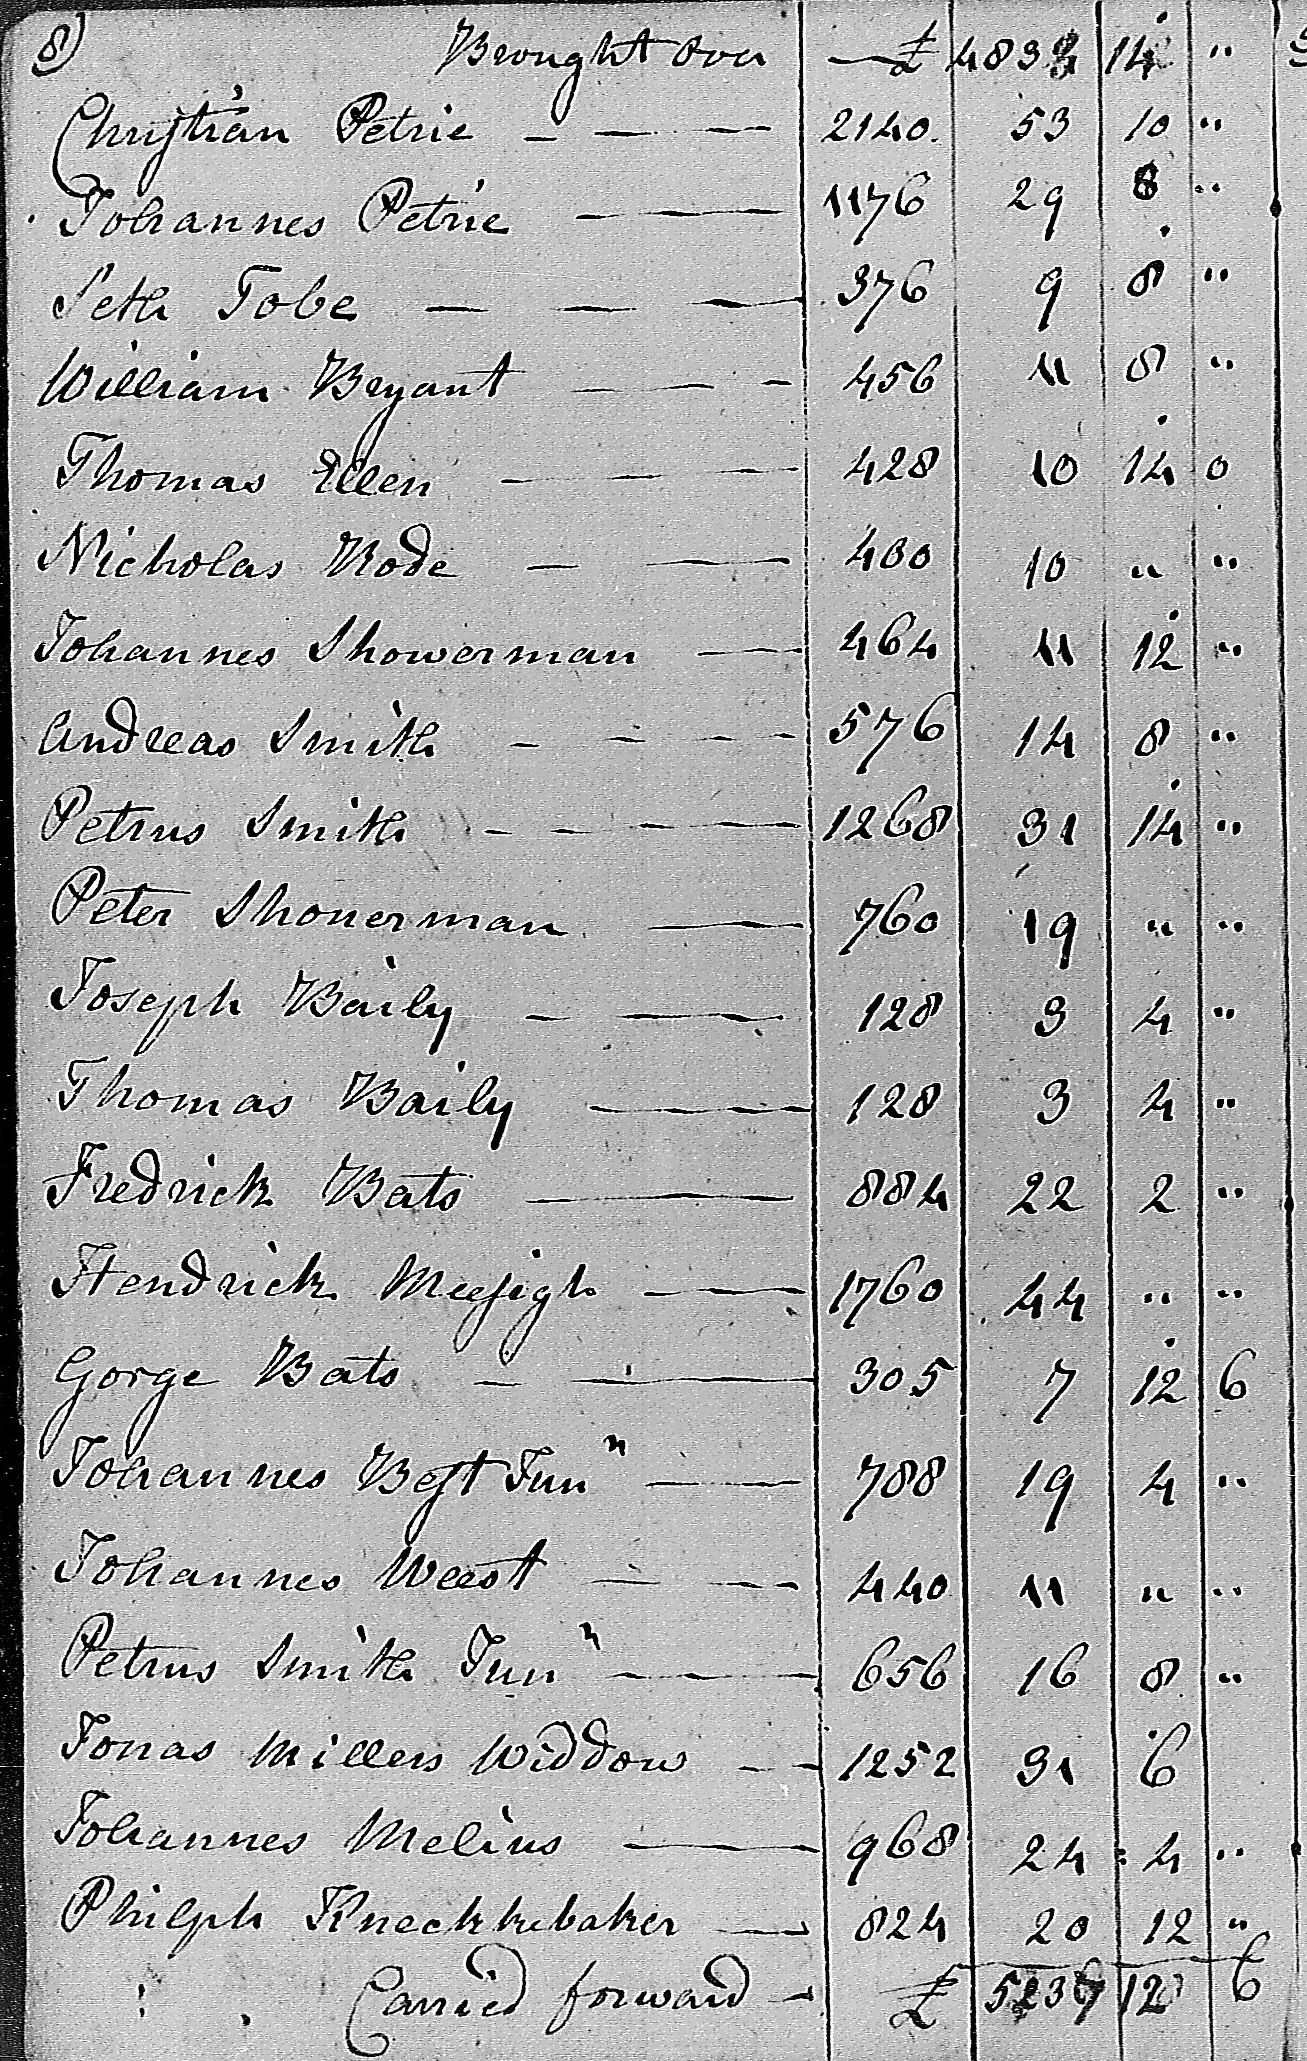 8) Brought Over — £ 4833 14 "
Christian Petrie — — — — 2140. 53 10 "
Johannes Petrie — — — 1176 29 8 "
Seth Tobe — — — 376 9 8 "
William Bryant — — — 456 11 8 "
Thomas Ellen — — — 428 10 14 0
Nicholas Rode — — — 400 10 " "
Johannes Showerman — — 464 11 12 "
Andreas Smith — — — — 576 14 8 "
Petrus Smith — — — — — 1268 31 14 "
Peter Showerman — — 760 19 " "
Joseph Baily — — — 128 3 4 "
Thomas Baily — — — 128 3 4 "
Fredrick Bats — — 884 22 2 "
Hendrick Meesigh — — 1760 44 " "
Gorge Bats — — 305 7 12 6
Johannes Best Junr — — 788 19 4 "
Johannes Weest — — — 440 11 " "
Petrus Smith Junr — — — 656 16 8 "
Jonas Millers Widdow — — 1252 31 6
Johannes Melius — — 968 24 : 4 "
Philiph Kneckkebaker — — 824 20 12 "
Carried forward — £ 5239 12 6